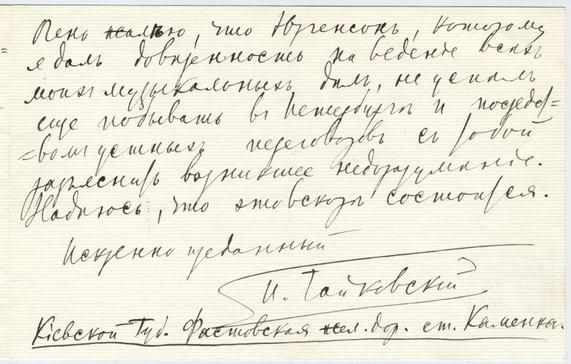 Очень жалею, что Юргенсонъ, которому
я далъ довѣренность на веденіе всѣхъ
моихъ музыкальныхъ дѣлъ, не успѣлъ
еще побывать въ Петербургѣ и посредст=
=вомъ устныхъ переговоровъ съ Тобой
разъяснить возникшее недоразумѣніе.
Надѣюсь, что это вскорѣ состоится.
Искренно преданный
П. Чайковскій
Кіевской Губ. Фастовская жел. дор. ст. Каменка.